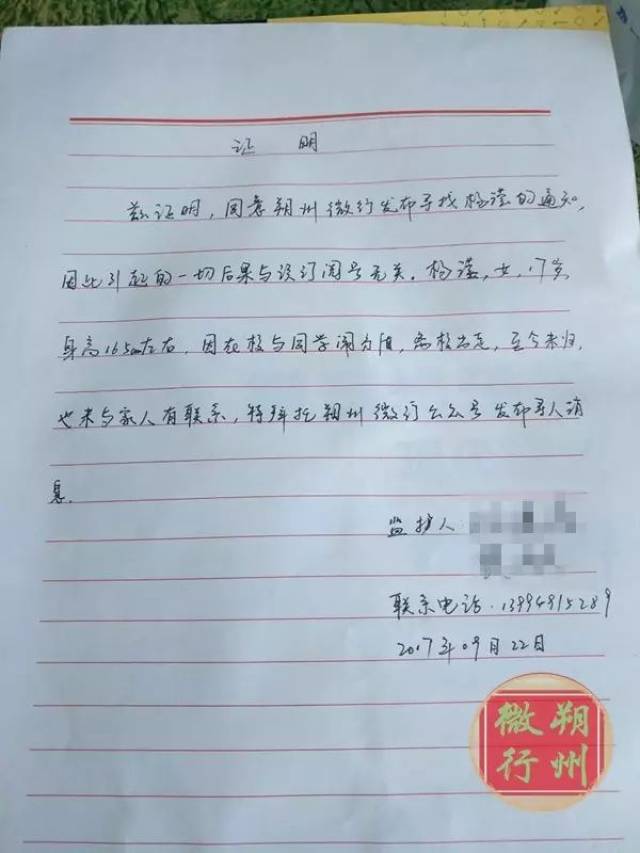 证 明
兹证明，同意朔州微行发布寻找杨滢的通知，
因此引起的一切后果与该订阅号无关。杨滢，女，17岁
身高165cm左右，因在校与同学闹矛盾，离校出走，至今未归，
也未与家人有联系，特拜托朔州微行公众号发布寻人消
息。
监护人
联系电话·13994915289
2017年09月22日
微朔
行州